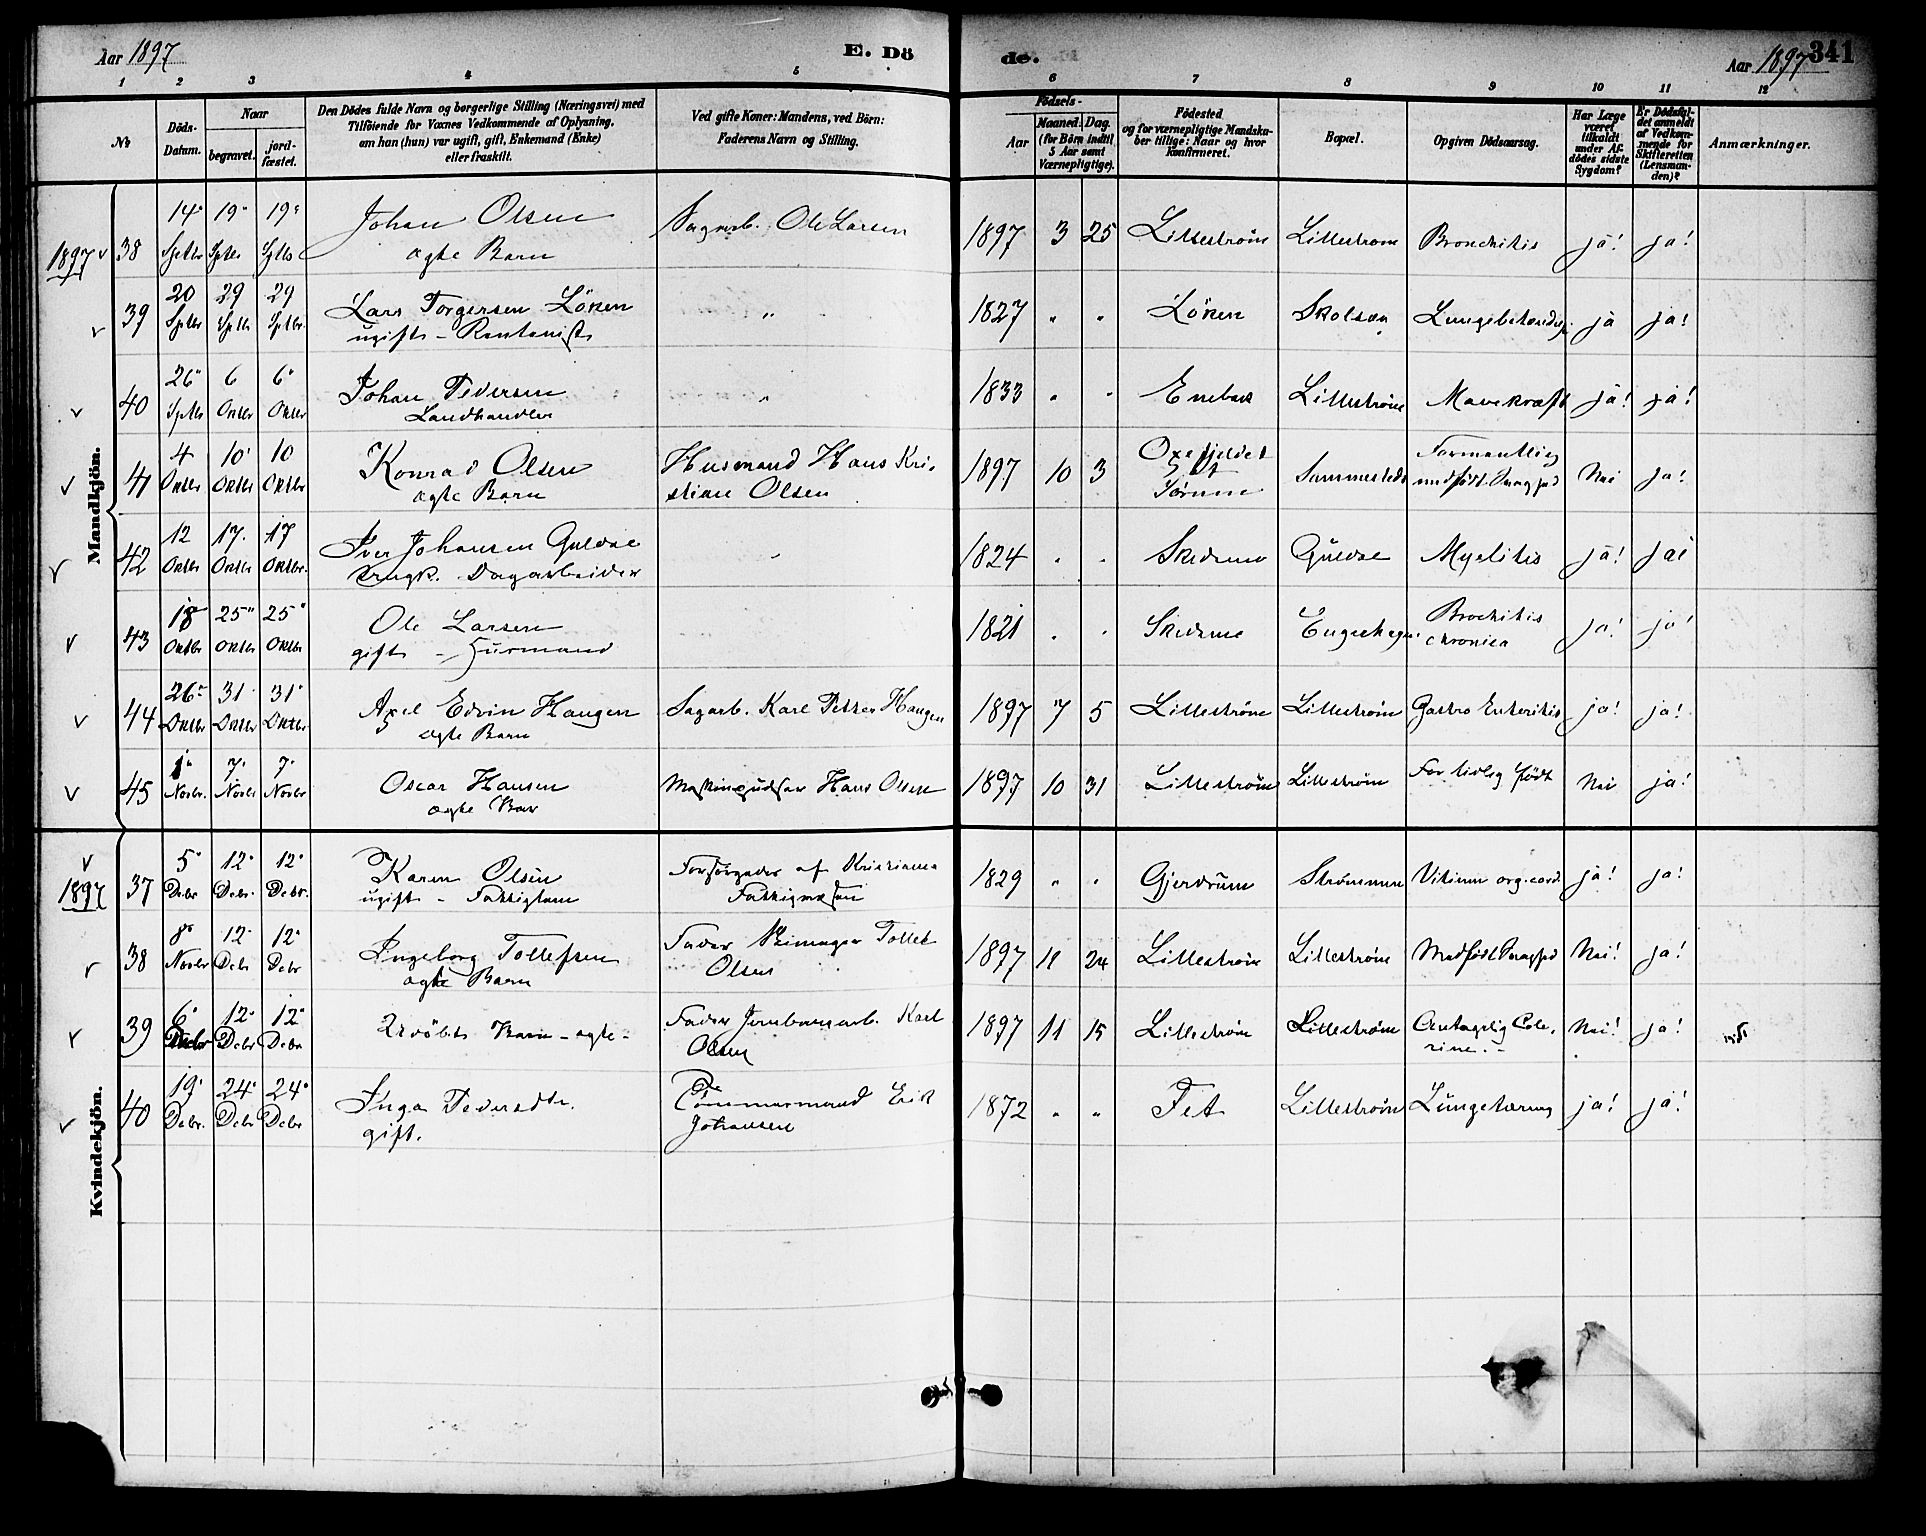 Aar 1897 E. Dö
de. Aar 1897 341
1 2 3 4 5 6 7 8 9 10 11 12
№
Döds-
Datum.
Naar
begravet.
jord-
fæstet.
Den Dödes fulde Navn og borgerlige Stilling (Næringsvei) med
Tilföiende for Voxnes Vedkommende af Oplysning.
om han (hun) var ugift, gift, Enkemand (Enke)
eller fraskilt.
Ved gifte Koner: Mandens, ved Börn:
Faderens Navn og Stilling.
Födsels-
Aar
Maaned. Dag.
(for Börn indtil
5 Aar samt
Værnepligtige).
Födested
og for værnepligtige Mandska-
ber tillige: Naar og hvor
konfirmeret.
Bopæl.
Opgiven Dödsaarsag.
Har Læge
været
tilkaldt
under Af-
dödes sidste
Sygdom?
Er Dödsfal-
det anmeldt
af Vedkom-
mende for
Skifteretten
(Lensman-
den)?
Anmærkninger.
Mandkjön.
1897 38 14 Sptbr 19 Sptbr 19 Sptbr Johan Olsen
ægte Barn
Sagarb. Ole Larsen 1897 3 25 Lillestrøm Lillestrøm Bronchitis ja! ja!
39 20 Sptbr 29 Sptbr 29 Sptbr Lars Torgersen Löken
ugift - Rentenist
" 1827 " " Löken Lungebetændelse ja ja!
40 26 Sptbr 6 Oktbr 6 Oktbr Johan Pedersen
Landhandler
" 1833 " " Enebak Lillestrøm Mavekræft ja! ja!
41 4 Oktbr 10 Oktbr 10 Oktbr Konrad Olsen
ægte Barn
Husmand Hans Kri-
stian Olsen
1897 10 3 Sørum Sammesteds Formentlig
medfödt Svaghed
Nei ja!
42 12 Oktbr 17 Oktbr 17 Oktbr Iver Johansen Guldal
Dagarbeider
" 1824 " " Skedsmo Guldal Myelitis ja! ja!
43 18 Oktbr 25 Oktbr 25 Oktbr Ole Larsen
gift - Husmand
1821 " " Skedsmo Bronchitis
chronica
ja! ja!
44 26 Oktbr 31 Oktbr 31 Oktbr Axel Edvin Haugen
ægte Barn
Sagarb. Karl Petter Haugen 1897 7 5 Lillestrøm Lillestrøm Gastro Enteritis ja! ja!
45 1 Novbr. 7 Novbr 7 Novbr Oscar Hansen
ægte Barn
Maskinpudser Hans Olsen 1897 10 31 Lillestrøm Lillestrøm For tidlig födt Nei ja!
Kvindekjön.
1897 37 5 Debr 12 Debr. 12 Debr. Karen Olsen
ugift - Fattiglem
Forsörgedes af Kristiania
Fattigvæsen
1829 " " Gjerdrum Strømmen Vitium org. cord. ja! ja!
38 8 Novbr 12 Debr 12 Debr Ingeborg Tollefsen
ægte Barn
Fader Tollef
Olsen
1897 11 24 Lillestrøm Lillestrøm Medfödt Svaghed Nei! ja!
39 6 Debr 12 Debr 12 Debr Udöbt Barn - ægte -
Fader Jernbanearb. Karl
Olsen
1897 11 15 Lillestrøm Lillestrøm Antagelig Cole-
rine. -
Nei! ja!
40 19 Debr. 24 Debr 24 Debr Inga Pedersdtr.
gift.
Tömmermand Erik
Johansen
1872 " " Fet Lillestrøm Lungetæring ja! ja!